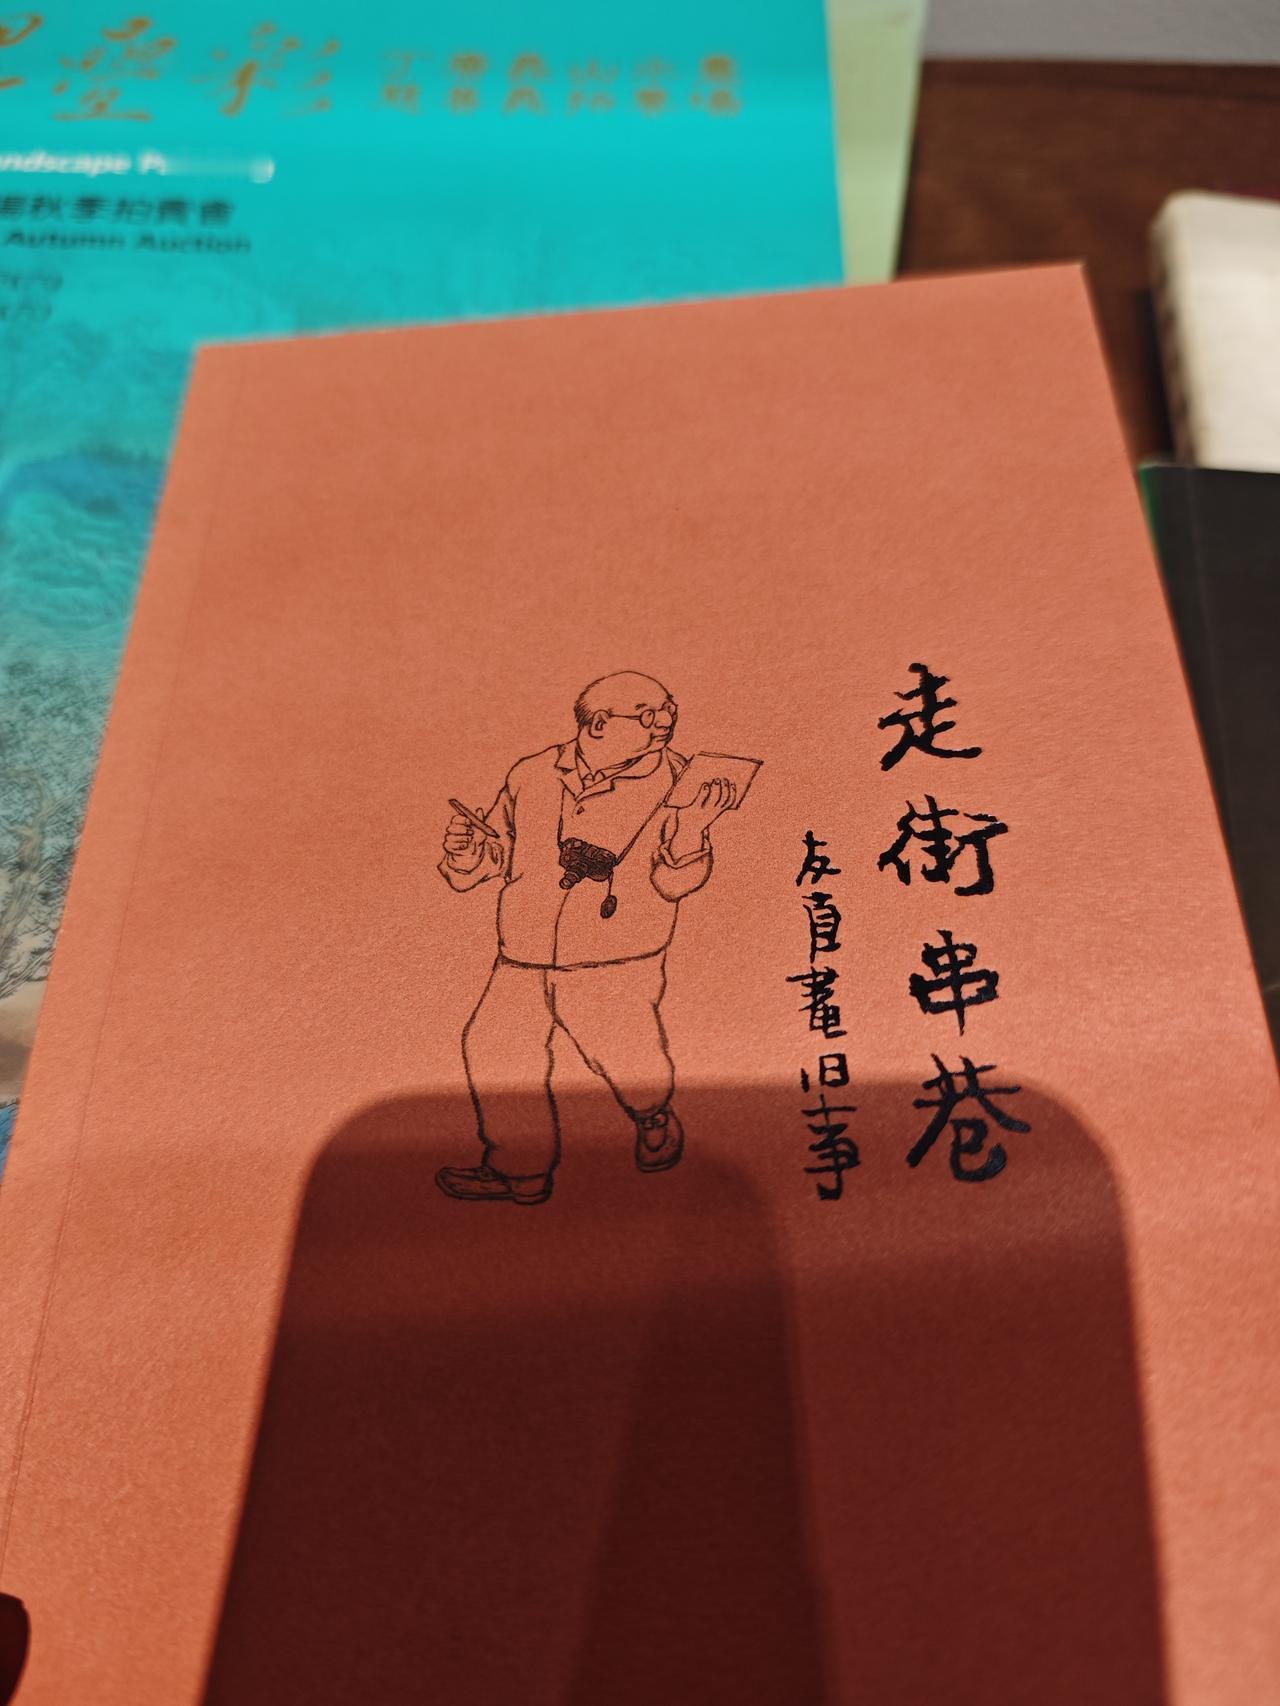 壘彩
ndscape P
秋季拍賣會
Autumn Auction
走街串巷
友直畫旧事